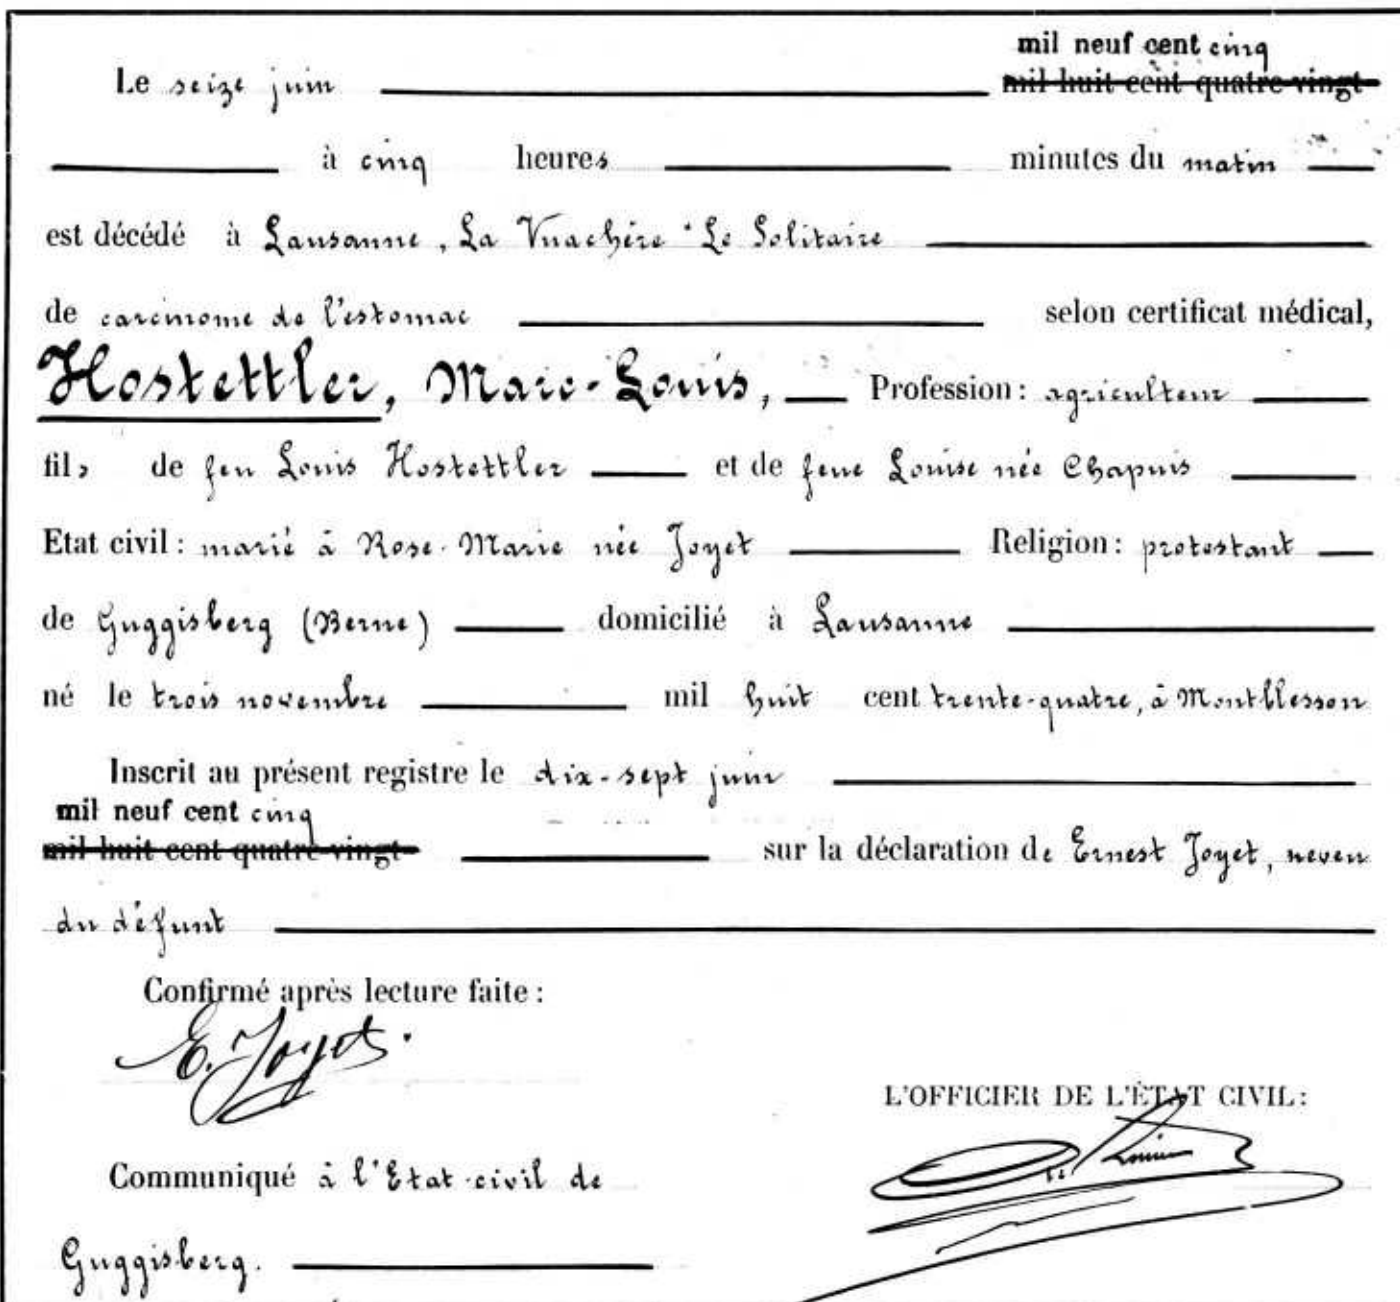 mil neuf cent cinq
Le seize juin mil huit cent quatre-vingt-
à cinq heures minutes du matin
est décédé à Lausanne, La Vuachère "Le Solitaire
de carcinome de l'estomac selon certificat médical,
Hostettler, Marc-Louis, Profession: agriculteur
fils de feu Louis Hostettler et de feue Louise née Chapuis
Etat civil: marié à Rose-Marie née Joyet Religion: protestant
de Guggisberg (Berne) domicilié à Lausanne
né le trois novembre mil huit cent trente-quatre, à Montblesson
Inscrit au présent registre le dix-sept juin
mil neuf cent cinq
mil huit cent quatre-vingt- sur la déclaration de Ernest Joyet, neveu
du défunt
Confirmé après lecture faite:
E. Joyet.
L'OFFICIER DE L'ÉTAT CIVIL:
Communiqué à l'Etat-civil de
Guggisberg.